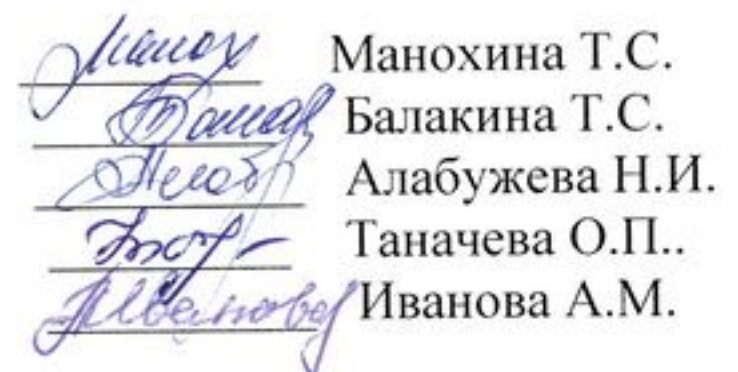 Манох Манохина Т.С.
Балак Балакина Т.С.
Алаб Алабужева Н.И.
Таначева О.П..
Иванова Иванова А.М.